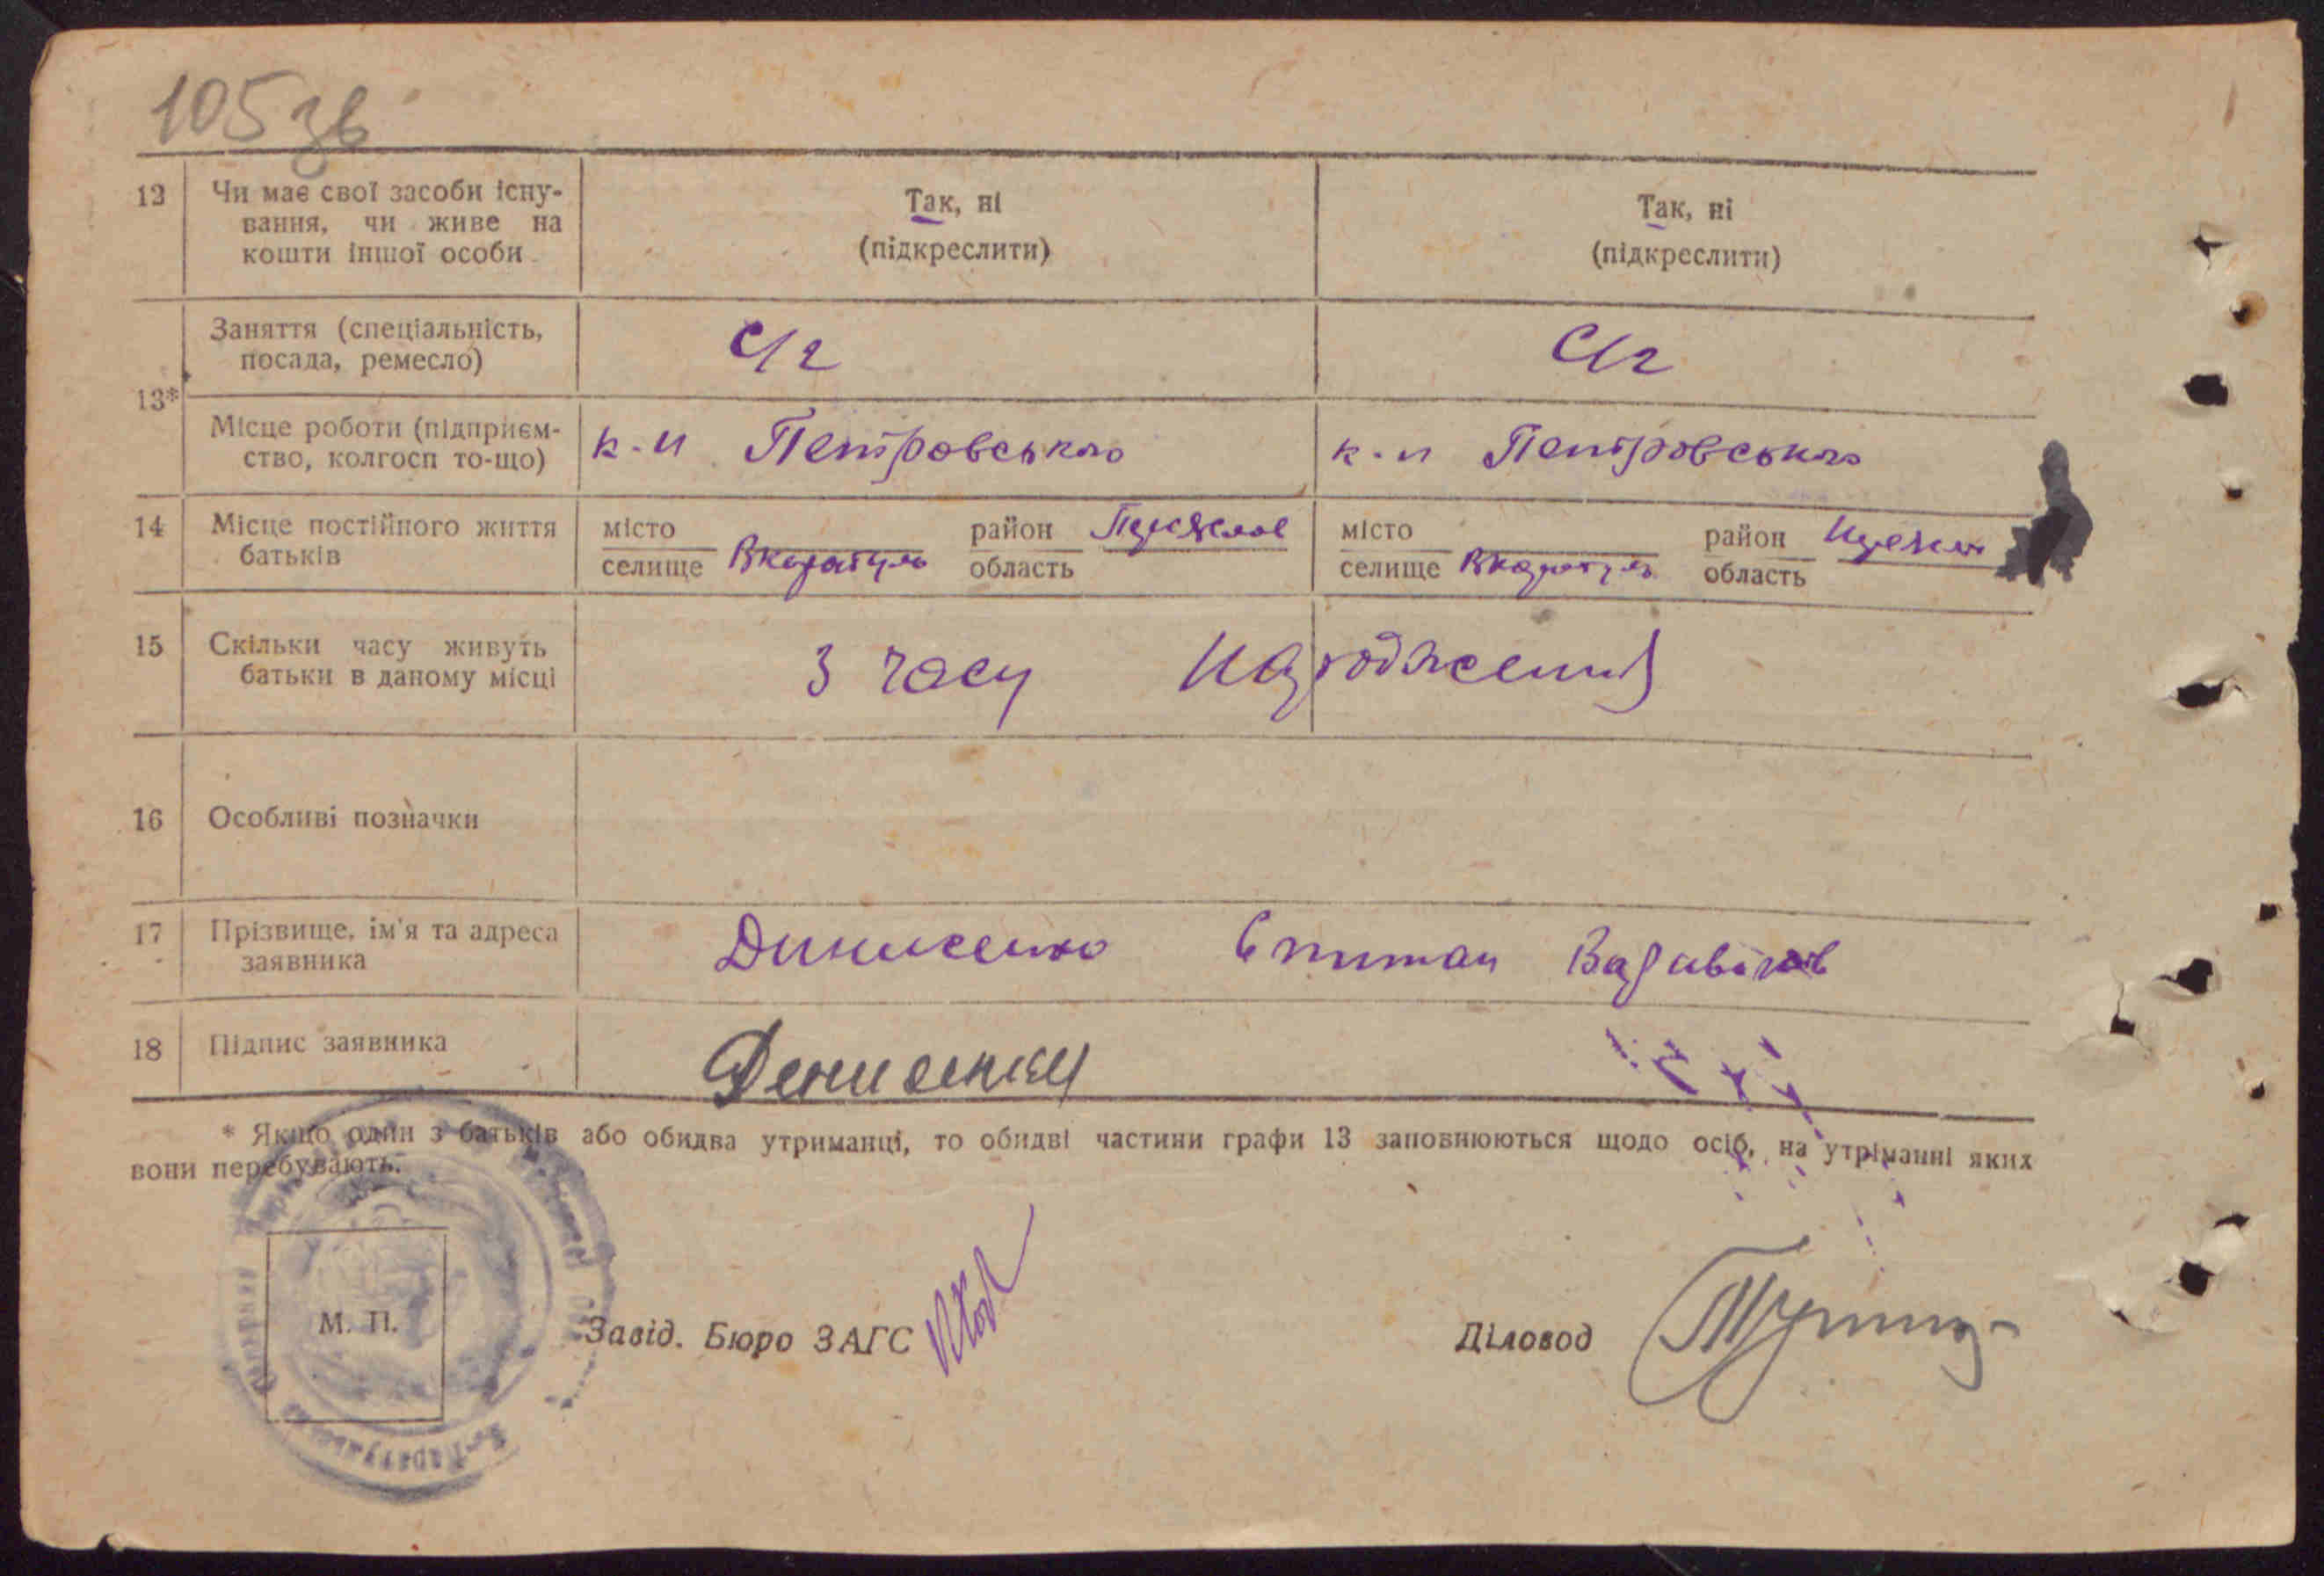 105 зв
12 Чи має свої засоби існу-
вання, чи живе на
кошти іншої особи
Так, ні
(підкреслити)
Так, ні
(підкреслити)
13*
Заняття (спеціальність,
посада, ремесло)
С/г
С/г
Місце роботи (підприєм-
ство, колгосп то-що)
к-п Петровського
к-п Петровського
14 Місце постійного життя
батьків
місто
селище
район
область
місто
селище
район
область
15 Скільки часу живуть
батьки в даному місці
З часу народження
16 Особливі позначки
17 Прізвище, ім'я та адреса
заявника
Динисенко
18 Підпис заявника
* Якщо один з батьків або обидва утриманці, то обидві частини графи 13 заповнюються щодо осіб, на утріманні яких
вони перебувають.
М. П.
Завід. Бюро ЗАГС
Діловод